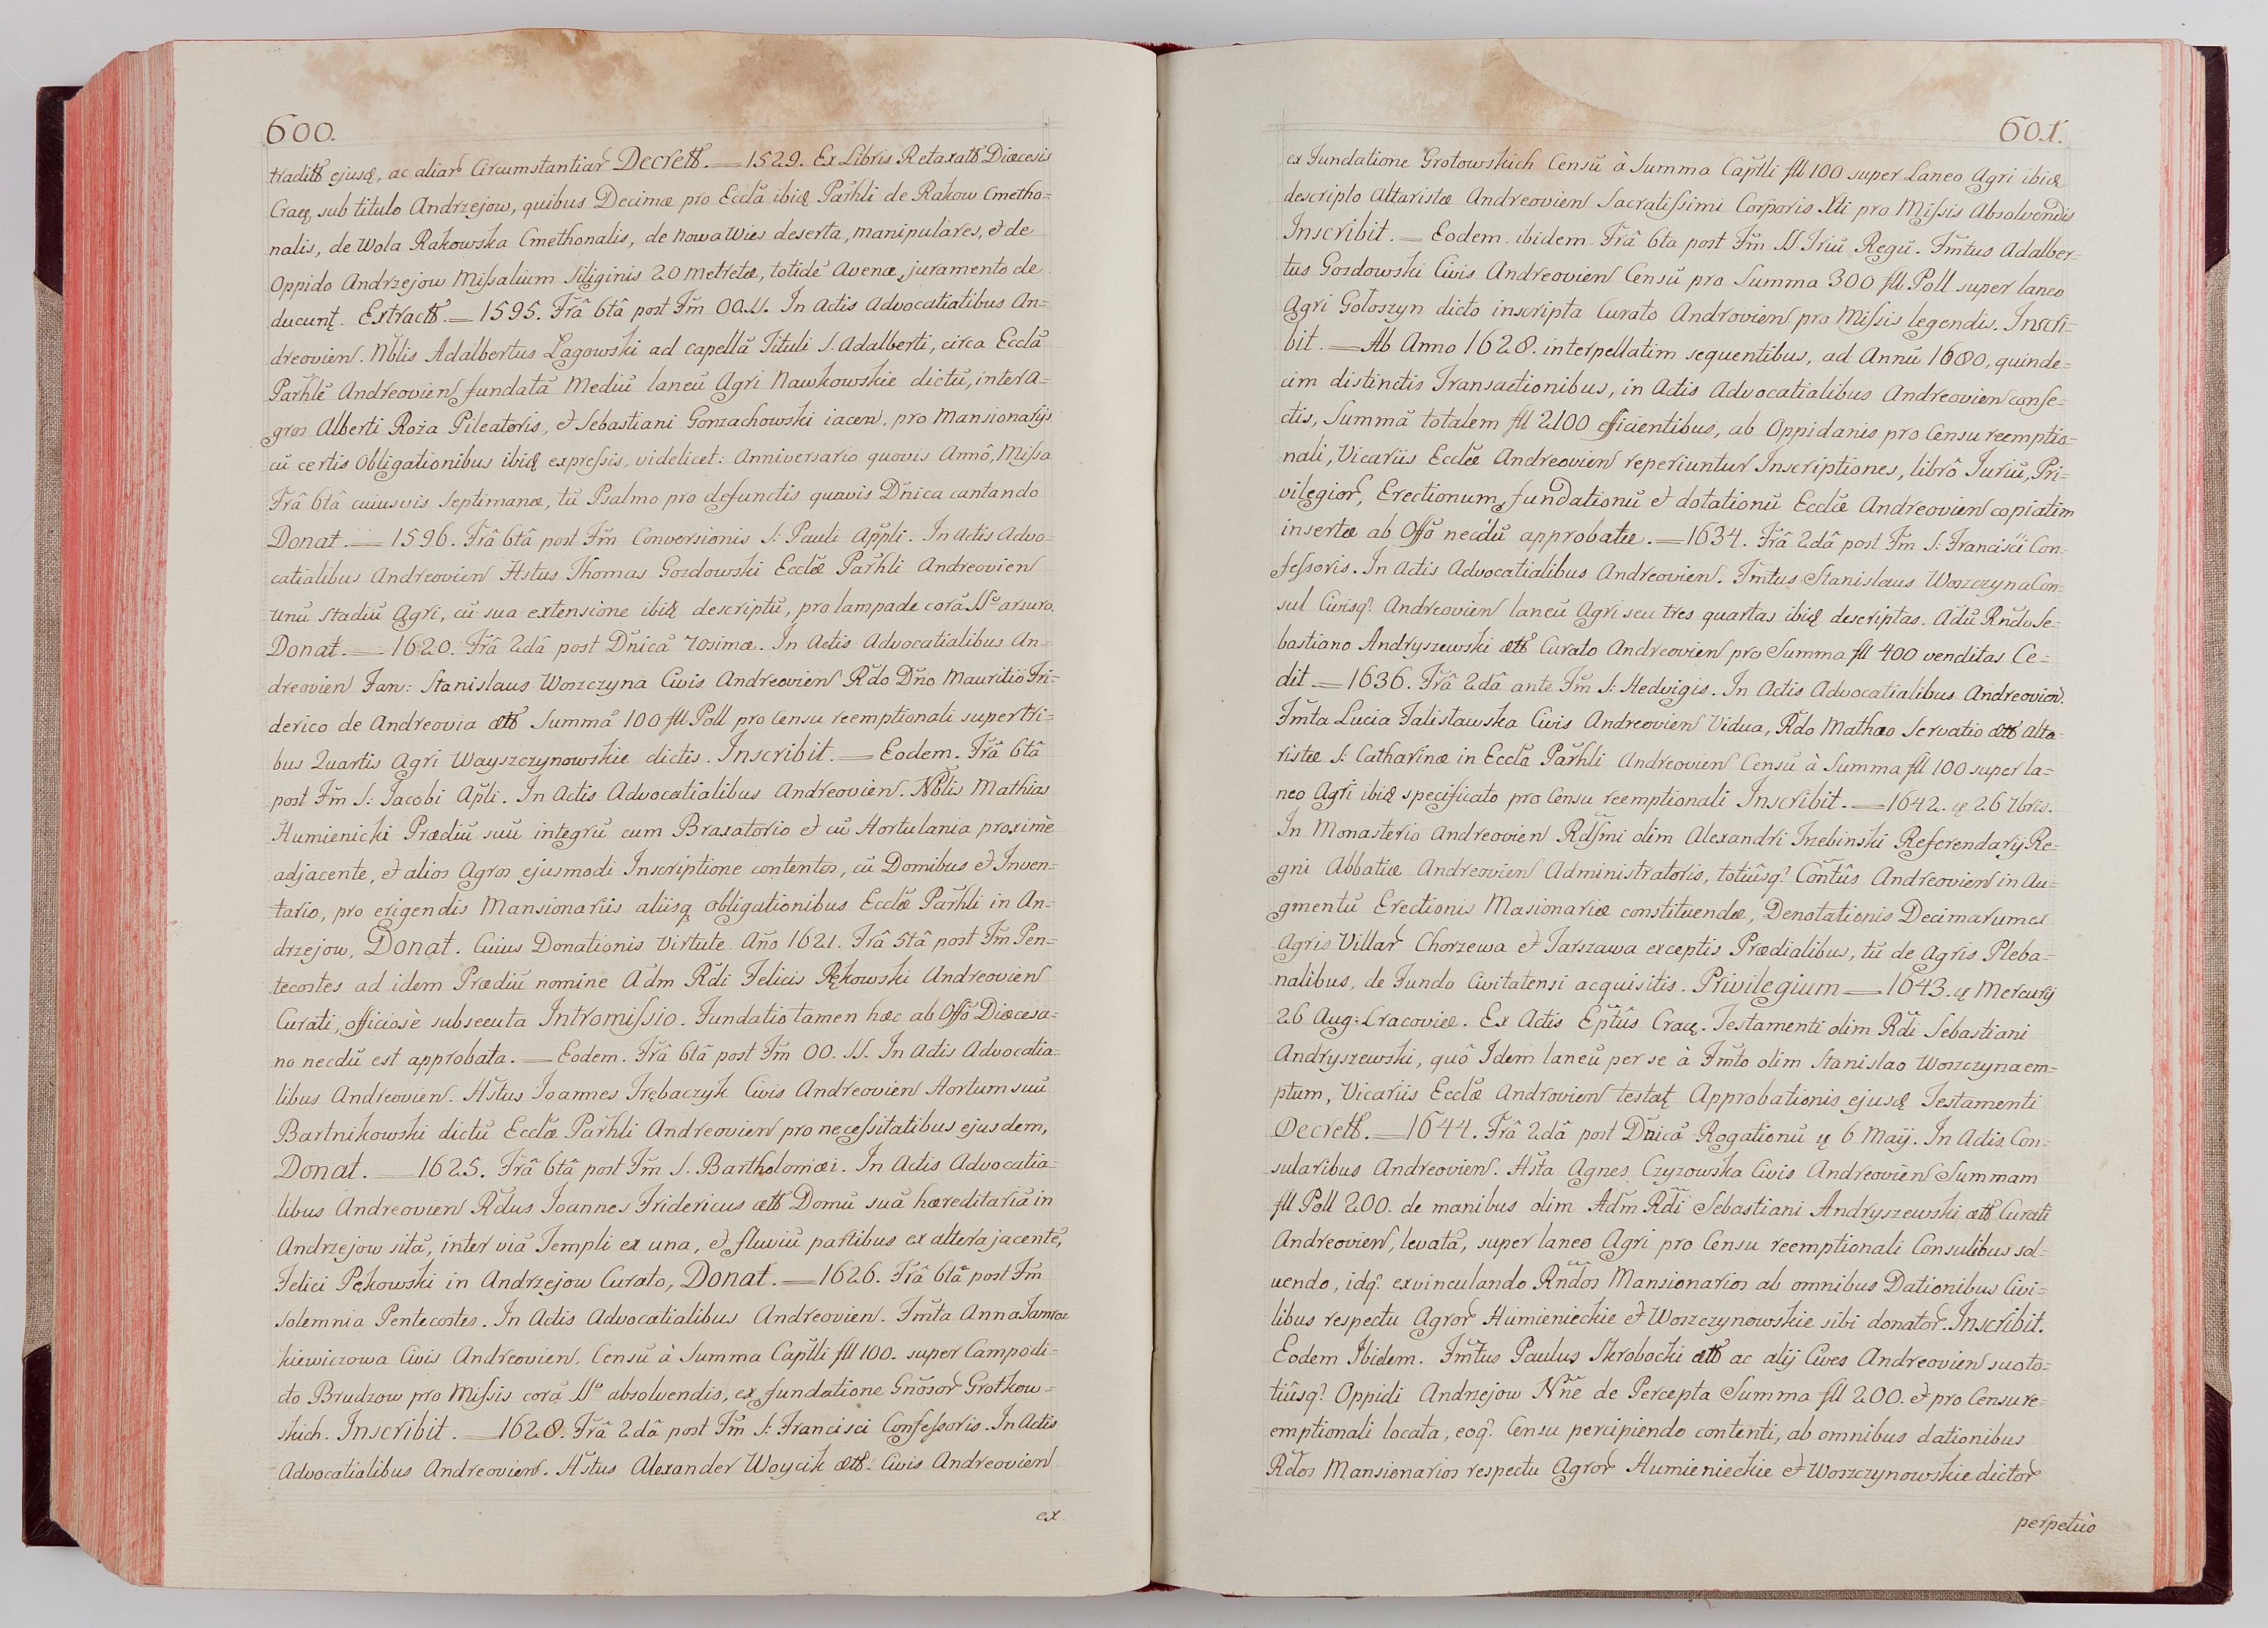 600.
traditt ejusq, ac aliar Circumstantiar Decrett. — 1529. Ex Libris Retaxatt Diæcesis
Cracę, sub titulo Andrzejow, quibus Decimæ pro Ecclã ibiq Parħli de Rakow Cmetho=
nalis, de Wola Rakowska Cmethonalis, de Nowa Wies deserta, manipulares, et de
Oppido Andrzejow Missalium Siliginis 20 metretæ, totidẽ Avenæ, juramento de
ducunt. Extractt. — 1595. Frâ 6tâ post Fm OO.SS. In Actis Advocatiatibus An=
dreovien. Nblis Adalbertus Lagowski ad capellã Tituli S. Adalberti, circa Ecclã
Parħlẽ Andreovien fundatã Mediũ laneũ Agri Nawkowskie dictũ, inter A=
gros Alberti Roża Pileatoris, et Sebastiani Gonzachowski iacen, pro Mansionarijs
cũ certis Obligationibus ibiq expressis, videlicet: Anniversario quovis Annô, Missa
Frâ 6tâ cuiusvis Septimanæ, tũ Psalmo pro defunctis quavis Dnica cantando
Donat. — 1596. Frâ 6tâ post Fm Conversionis S: Pauli Appli. In Actis Advo=
catialibus Andreovien Hstus Thomas Gozdowski Ecclæ Parħli Andreovien
unũ Stadiũ Agri, cũ sua extensione ibiq descriptũ, pro lampade corã SSo arsuro.
Donat. — 1620. Frâ 2dâ post Dnicã 70simæ. In Actis Advocatialibus An=
dreovien Fam: Stanislaus Woszczyna Civis Andreovien Rdo Dno Mauritio Fri=
derico de Andreovia ett Summã 100 fll Poll pro Censu reemptionali super tri=
bus Quartis Agri Wayszczynowskie dictis. Inscribit. — Eodem. Frâ 6tâ
post Fm S: Jacobi Apli. In Actis Advocatialibus Andreovien. Nblis Mathias
Humienicki Prædiũ suũ integrũ cum Braxatorio et cũ Hortulania proximè
adjacente, et alios Agros ejusmodi Inscriptione contentos, cũ Domibus et Inven=
tario, pro erigendis Mansionariis aliisq obligationibus Ecclæ Parħli in An=
drzejow, Donat. Cuius Donationis virtute Año 1621. Frâ 5tâ post Fm Pen=
tecostes ad idem Prædiũ nomine Adm Rdi Felicis Pękowski Andreovien
Curati, officiosè subsecuta Intromissio. Fundatio tamen hæc ab Offo Diæcesa=
no necdũ est approbata. — Eodem. Frâ 6tâ post Fm OO. SS. In Actis Advocatia=
libus Andreovien. Hstus Joannes Trębaczyk Civis Andreovien Hortum suũ
Bartnikowski dictũ Ecclæ Parħli Andreovien pro necessitatibus ejusdem,
Donat. — 1625. Frâ 6tâ post Fm S. Bartholomæi. In Actis Advocatia=
libus Andreovien Rdus Joannes Fridericus ett Domũ suã hæreditariã in
Andrzejow sitã, inter viã Templi ex una, et fluviũ partibus ex altera jacentẽ,
Felici Pękowski in Andrzejow Curato, Donat. — 1626. Frâ 6tâ post Fm
Solemnia Pentecostes. In Actis Advocatialibus Andreovien. Fmta Anna Jamroz
kiewiczowa Civis Andreovien. Censũ à Summa Captlli fll 100. super Campo di=
cto Brudzow pro Missis corã SSo absolvendis, ex fundatione Gnosor Grotkow=
skich. Inscribit. — 1628. Frâ 2dâ post Fm S: Francisci Confessoris. In Actis
Advocatialibus Andreovien. Hstus Alexander Woycik ett. Civis Andreovien
ex.
601.
ex Fundatione Grotowskich Censũ à Summa Captli fll 100 super Laneo Agri ibiq
descripto Altaristæ Andreovien Sacratissimi Corporis Xti pro Missis Absolvendis
Inscribit. — Eodem. ibidem. Frâ 6ta post Fm SS. Triũ Regũ. Fmtus Adalber=
tus Gozdowski Civis Andreovien Censũ pro Summa 300 fll Poll super laneo
Agri Gołoszyn dicto inscripta Curato Androvien pro Missis legendis. Inscri=
bit. — Ab Anno 1628. interpellatim sequentibus, ad Annũ 1680. quinde=
cim distinctis Transactionibus, in Actis Advocatialibus Andreovien confe=
ctis, Summã totalem fll 2100 efficientibus, ab Oppidanis pro Censu reemptio=
nali, Vicariis Ecclæ Andreovien reperiuntur Inscriptiones, librô Juriũ, Pri=
vilegior, Erectionum, fundationũ et dotationũ Ecclæ Andreovien copiatim
insertæ ab Offo necdũ approbatæ. — 1634. Frâ 2dâ post Fm S: Francisci Con=
fessoris. In Actis Advocatialibus Andreovien. Fmtus Stanislaus Woszczyna Con=
sul Civisq? Andreovien laneũ Agri seu tres quartas ibiq descriptas. Adũ Rndo Se=
bastiano Andryszewski ett Curato Andreovien pro Summa fll 400 venditas Ce=
dit. — 1636. Frâ 2dâ ante Fm S: Hedvigis. In Actis Advocatialibus Andreovien.
Fmta Lucia Falisławska Civis Andreovien Vidua, Rdo Mathæo Servatio ett Alta=
ristæ S: Catharinæ in Ecclã Parħli Andreovien Censũ à Summa fll 100 super la=
neo Agri ibiq specificato pro Censu reemptionali Inscribit. — 1642. ę 26 7bris.
In Monasterio Andreovien Rdssmi olim Alexandri Trzebinski Referendarij Re=
gni Abbatiæ Andreovien Administratoris, totiûsq? Contûs Andreovien in Au=
gmentũ Erectionis Masionariæ constituendæ, Denotationis Decimarum ex
Agris Villar Chorzewa et Tarszawa exceptis Prædialibus, tũ de Agris Pleba=
nalibus, de Fundo Civitatensi acquisitis. Privilegium — 1643. ę Mercurij
26 Aug: Cracoviæ. Ex Actis Eptûs Cracę. Testamenti olim Rdi Sebastiani
Andryszewski, quô Idem laneũ per se à Fmto olim Stanislao Woszczyna em=
ptum, Vicariis Ecclæ Androvien testat Approbationis ejusq Testamenti
Decrett. — 1644. Frâ 2dâ post Dnicã Rogationũ ę 6 Maij. In Actis Con=
sularibus Andreovien. Hsta Agnes Czyzowska Civis Andreovien Summam
fll Poll 200. de manibus olim Adm Rdi Sebastiani Andryszewski ett Curati
Andreovien, levatã, super laneo Agri pro Censu reemptionali Consulibus sol=
uendo, idq? exvinculando Rndos Mansionarios ab omnibus Dationibus Civi=
libus respectu Agror Humienieckie et Woszczynowskie sibi donator. Inscribit.
Eodem Ibidem. Fmtus Paulus Skrobocki ett ac alij Cives Andreovien suo to=
tiûsq? Oppidi Andrzejow Nne de Percepta Summa fll 200. et pro Censu re=
emptionali locata, eoq? Censu percipiendo contenti, ab omnibus dationibus
Rdos Mansionarios respectu Agror Humienieckie et Woszczynowskie dictor
perpetuò